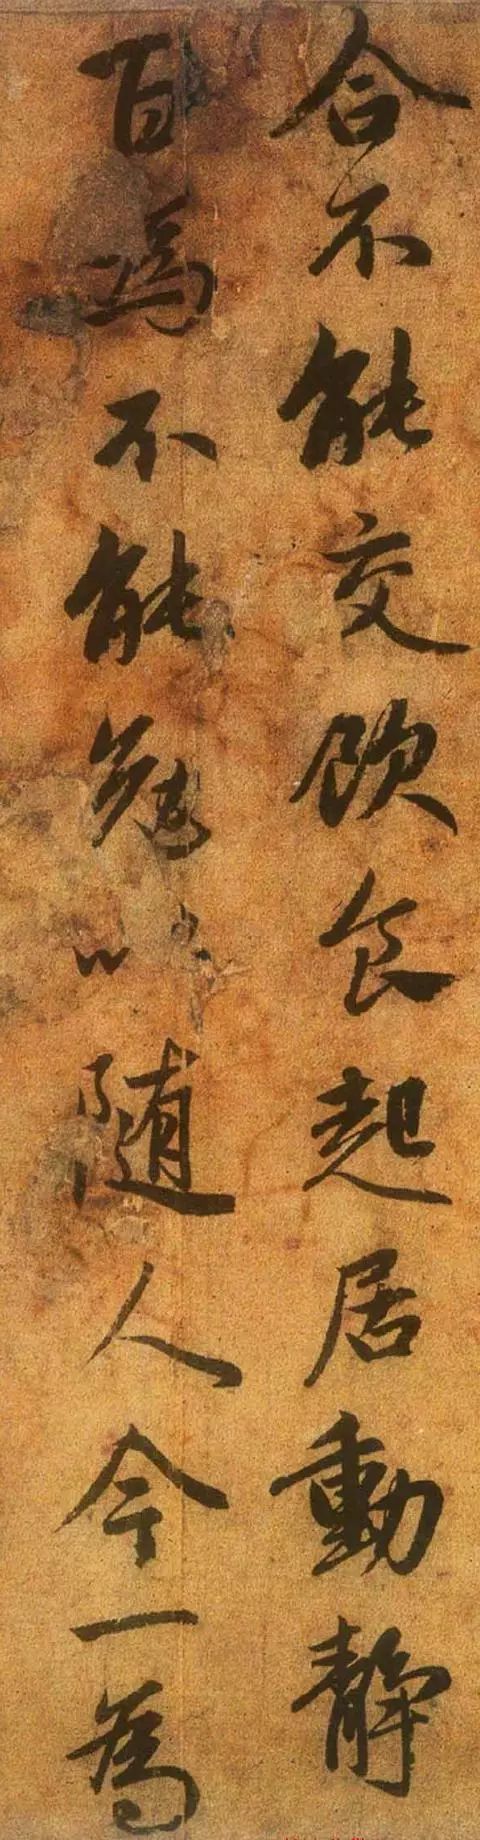 合不能交飲食起居動靜
百為不能勉以隨人今一為